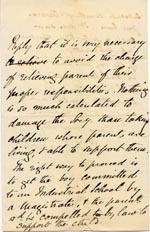 Reply that it is very necessary
to avoid the charge
of relieving parents of their
proper responsibilities. Nothing
is so much calculated to
damage the boy than taking
children whose parents are
living, & able to support them.
The right way to proceed is
to get the boy committed
to an Industrial School by
a Magistrate, & the parent
will be compelled by law to
support the child